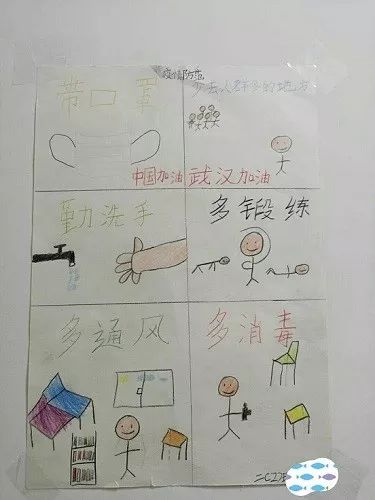 疫情防范
带口罩
少去人群多的地方
中国加油 武汉加油
勤洗手
多锻练
多通风
多消毒